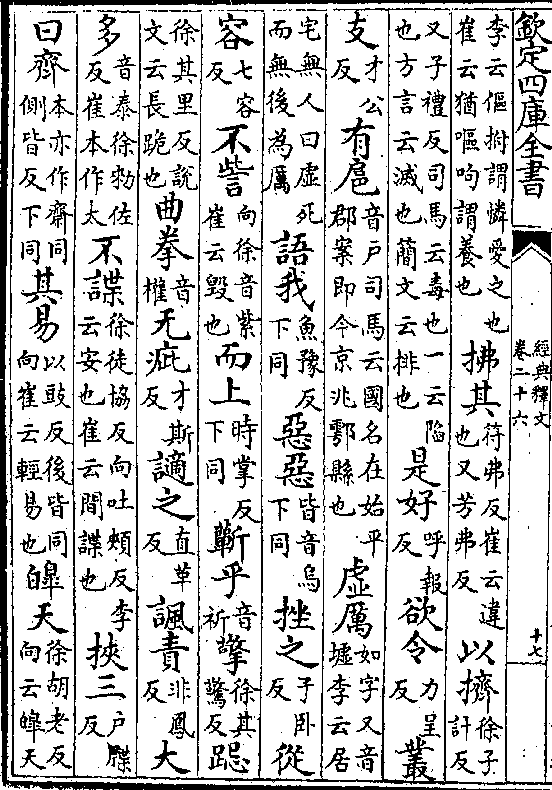 欽定四庫全書
經典釋文
卷二十六
十七
李云傴拊謂憐愛之也崔云猶嘔呴謂養也拂其符弗反崔云違也又芳弗反以擠徐子計反
又子禮反司馬云毒也一云陷也方言云滅也簡文云排也是好呼報反欲令力呈反叢
支才公反有扈音戶司馬云國名在始平郡案即今京兆鄠縣也虛厲如字又音墟李云居
宅無人曰虛死而無後為厲語我魚豫反下同惡惡皆音烏下同挫之子卧反從
容七容反不訾向徐音紫崔云毀也而上時掌反下同蘄乎音祈擎徐其驚反跽
徐其里反說文云長跪也曲拳音權无疵才斯反讁之直革反諷責非鳳反大
多音泰徐勑佐反崔本作太不諜徐徒協反向吐頰反李云安也崔云間諜也挾三戶牒反
曰齊本亦作齋同側皆反下同其易以豉反後皆同向崔云輕易也皞天徐胡老反向云皞天